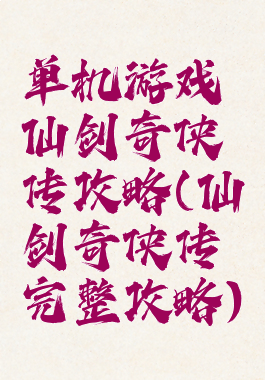 单机游戏
仙剑奇侠
传攻略(仙
剑奇侠传
完整攻略)